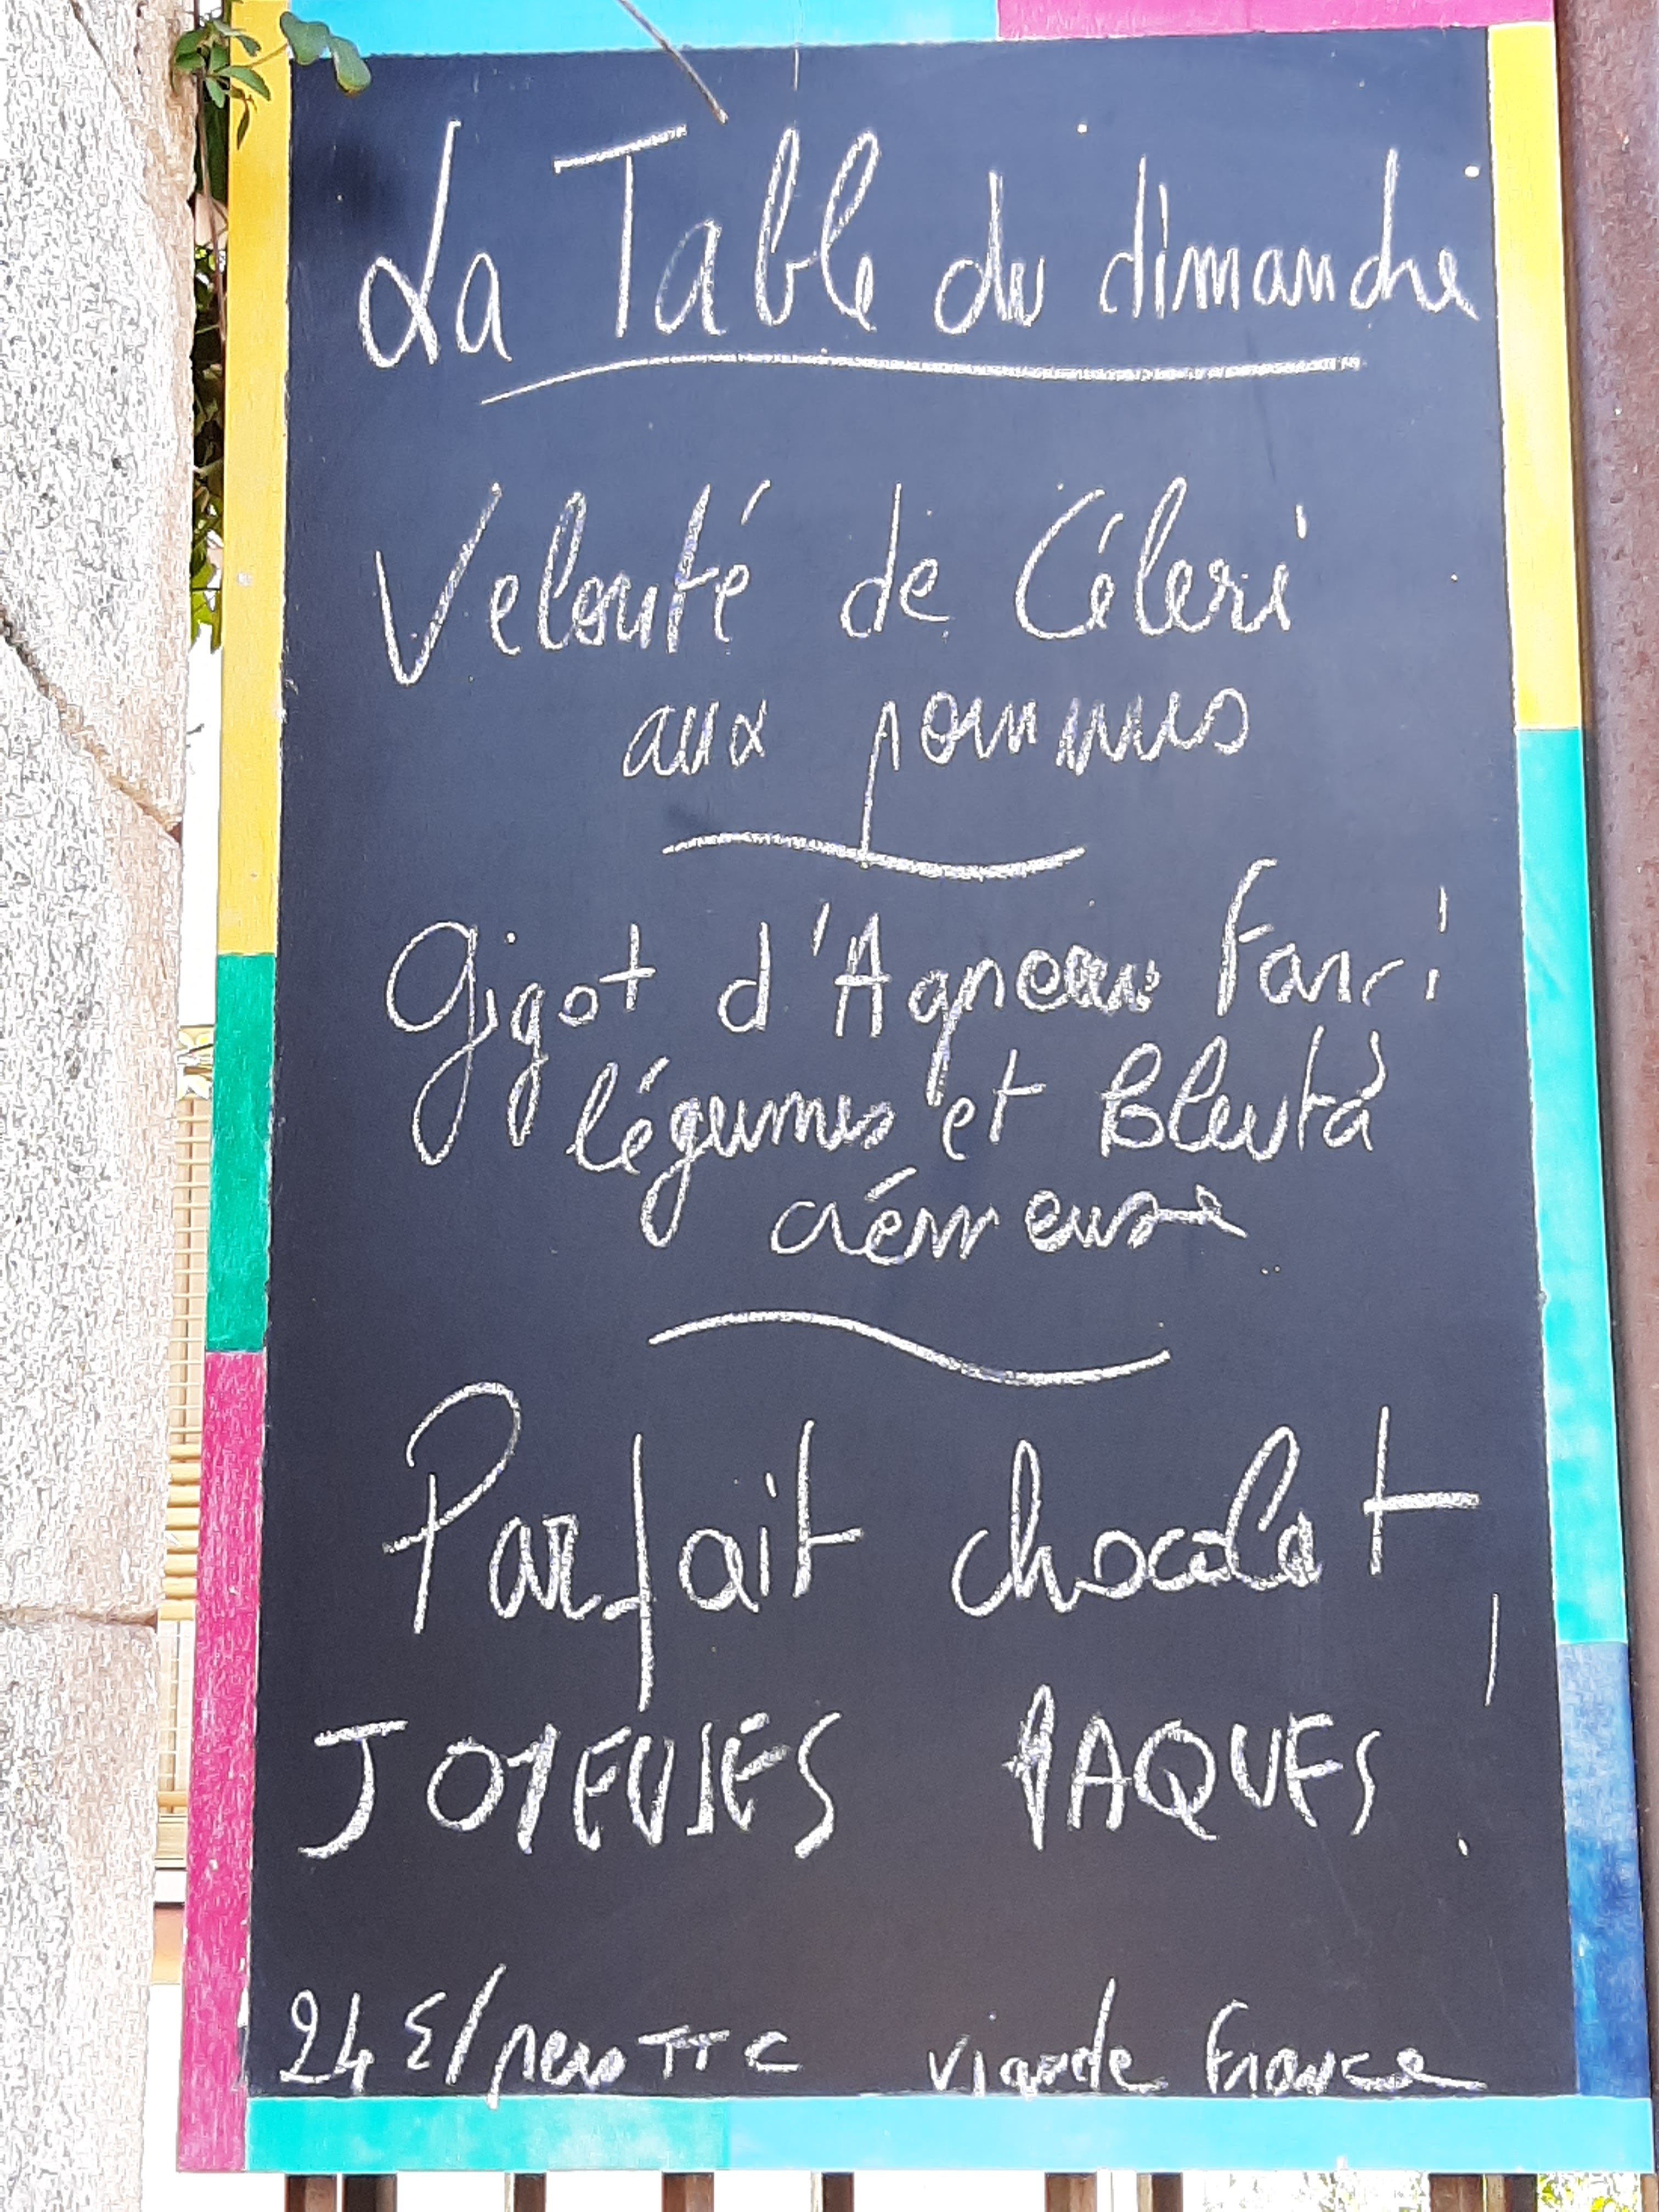 La Table du dimanche
Velouté de Céleri
aux pommes
Gigot d'Agneau Farci
légumes et Polenta
crémeuse
Parfait chocolat
JOYEUSES PAQUES !
24 €/pers TTC viande France